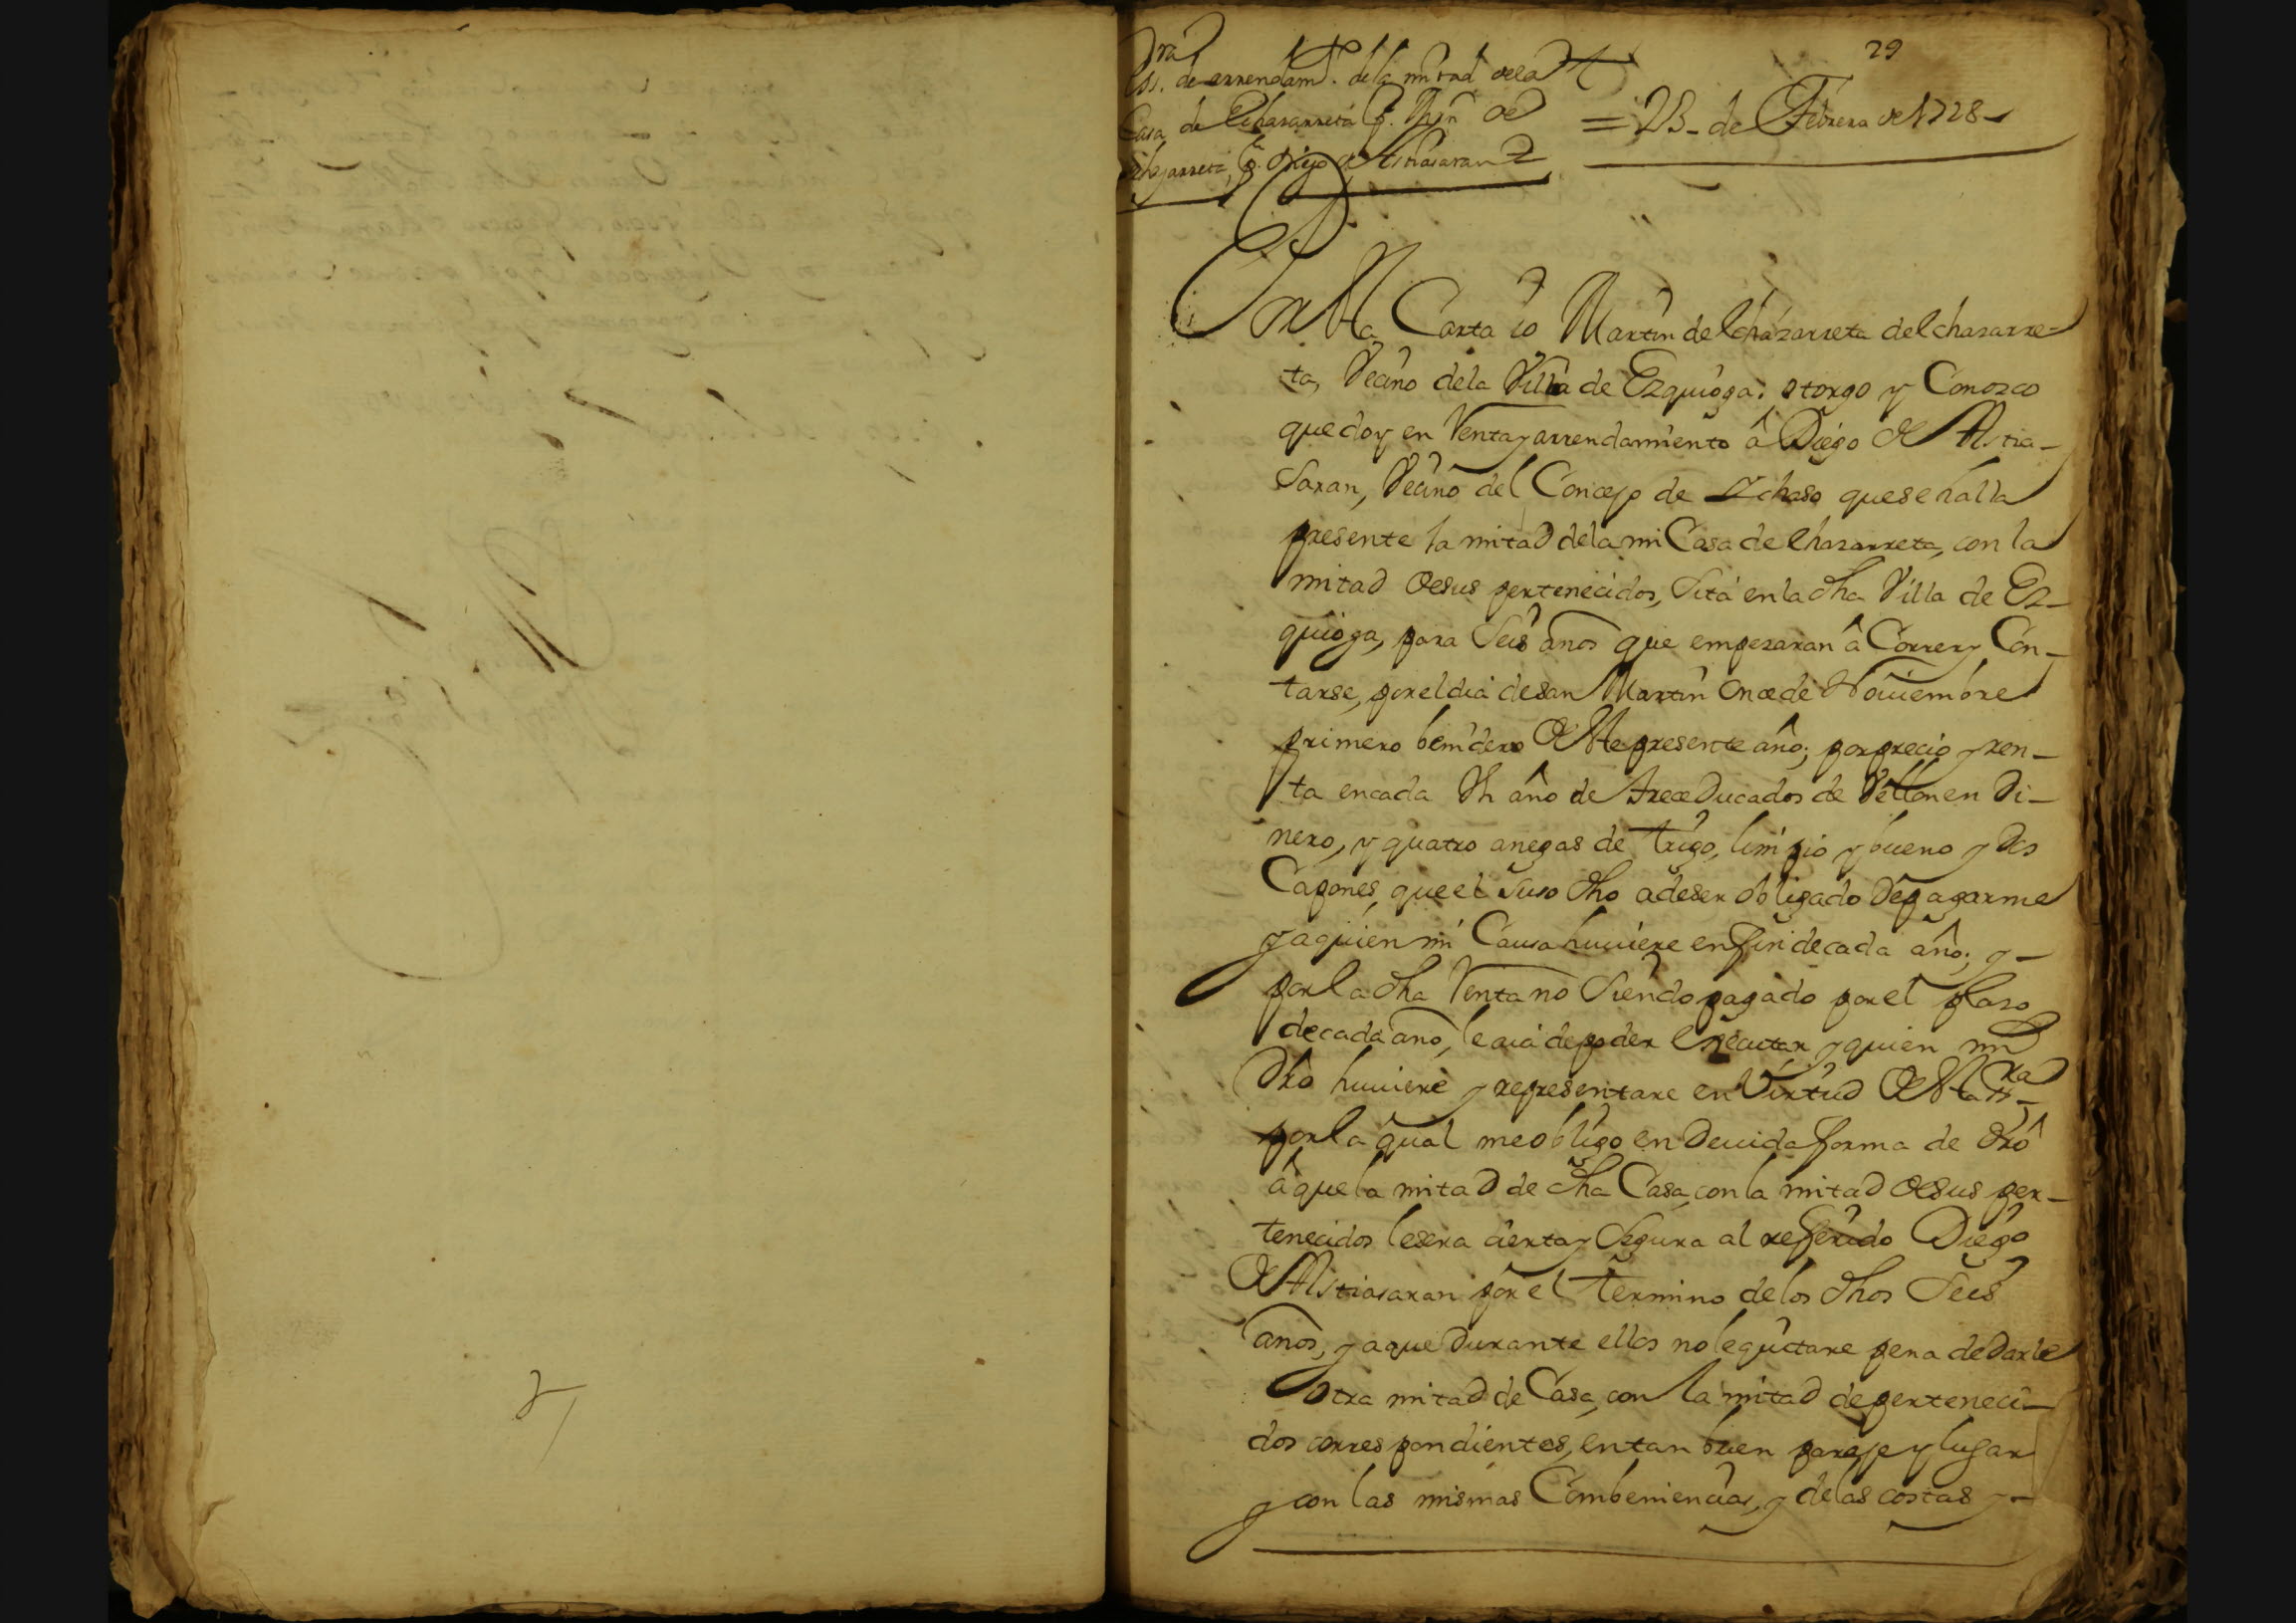 29
Ess.ra de arrendam.to de la mitad de la
Casa de Echazarreta p.r Mrn de
Echazarreta, p.a Diego de Astiasaran
= 23 de Febrero de 1728
En esta Carta io Martin de Echazarreta de Echazarre-
ta, Vecino de la Villa de Ezquioga; otorgo y Conozco
que doy en Renta y arrendamiento â Diego de Astia-
saran, Vecino del Concejo de Ychaso que se halla
presente la mitad de la mi Casa de Echazarreta, con la
mitad de sus pertenecidos, Sita en la dha Villa de Ez-
quioga, para Seis años que empezaran â Correr y Con-
tarse, por el dia de san Martin Once de Nouiembre
primero benidero de este presente año; por precio y ren-
ta en cada Un año de trece Ducados de Vellon en Di-
nero, y quatro anegas de trigo, limpio y bueno y dos
Capones, que el Suso dho a de ser obligado de pagarme
y a quien mi Causa huuiere en fin de cada año; y
por la dha Renta no Siendo pagado por el plaso
de cada año, le aia de poder executar y quien mi
Dro huuiere y representare en Virtud de esta ess.ra
por la qual me obligo en Deuida forma de dro
â que la mitad de dha Casa, con la mitad de sus per-
tenecidos le sera cierta y Segura al refferido Diego
de Astiasaran por el Termino de los dhos Seis
años, y a que Durante ellos no le quitare pena de Darle
Otra mitad de Casa, con la mitad de perteneci-
dos correspondientes, en tan buen paraje y lugar
y con las mismas Combeniencias, y de las costas y